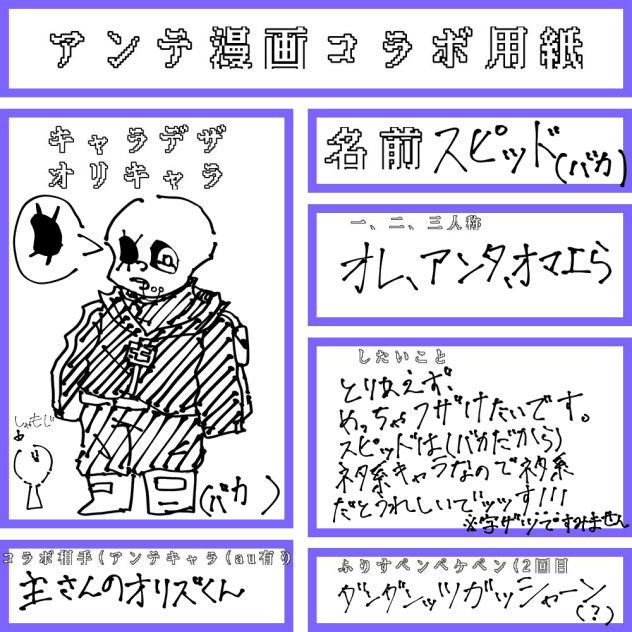 アンテ漫画コラボ用紙
キャラデザ
オリキャラ
しゃもじ
(バカ)
名前 スピッド(バカ)
一、二、三人称
オレ、アンタ、オマエら
したいこと
とりあえず、
めっちゃフザけたいです。
スピッドは(バカだから)
ネタ系キャラなのでネタ系
だとうれしいでッッす!!!
※字ガッツですみません
コラボ相手(アンテキャラ(au有り)
主さんのオリズくん
ふりすペンペケペン(2回目
ガンガンッツガッシャーン
(?)